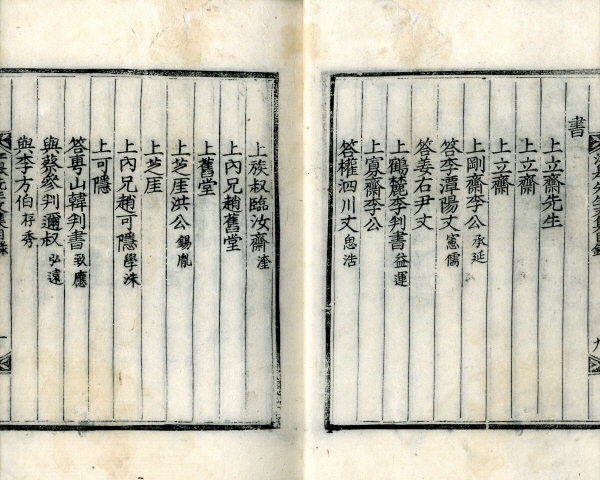 書
上立齋先生
上立齋
上立齋
上剛齋李公 承延
答李潭陽丈 憲儒
答姜石尹丈
上鶴麓李判書 益運
上寡齋李公
答權泗川丈 思浩
上族叔臨汝齋 㙔
上內兄趙舊堂
上舊堂
上芝厓洪公 錫胤
上芝厓
上內兄趙可隱 學洙
上可隱
答粤山韓判書 致應
與蔡參判邇叔 弘遠
與李方伯 存秀